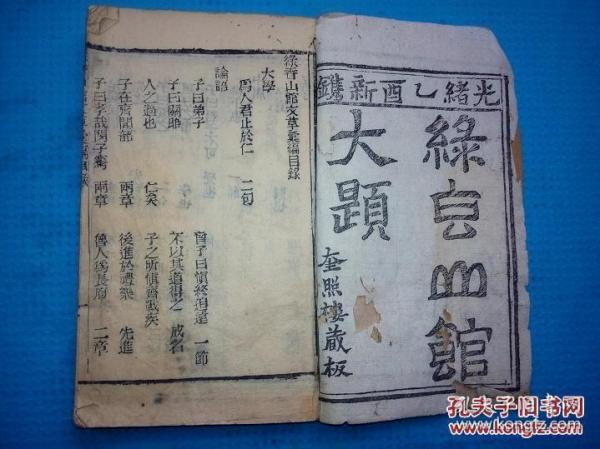 光緒乙酉新鐫
綠雪山館
大題
奎照樓藏板
大學
爲人君止於仁 二句
論語
子曰弟子
曾子曰愼終追遠 一節
子曰關雎
不以其道得之 成名
人之過也 仁矣
子之所愼齊戰疾
子在齊聞韶 兩章
後進於禮樂 先進
子曰孝哉閔子騫 兩章
魯人爲長府 二章
孔夫子旧书网
www.kongfz.com